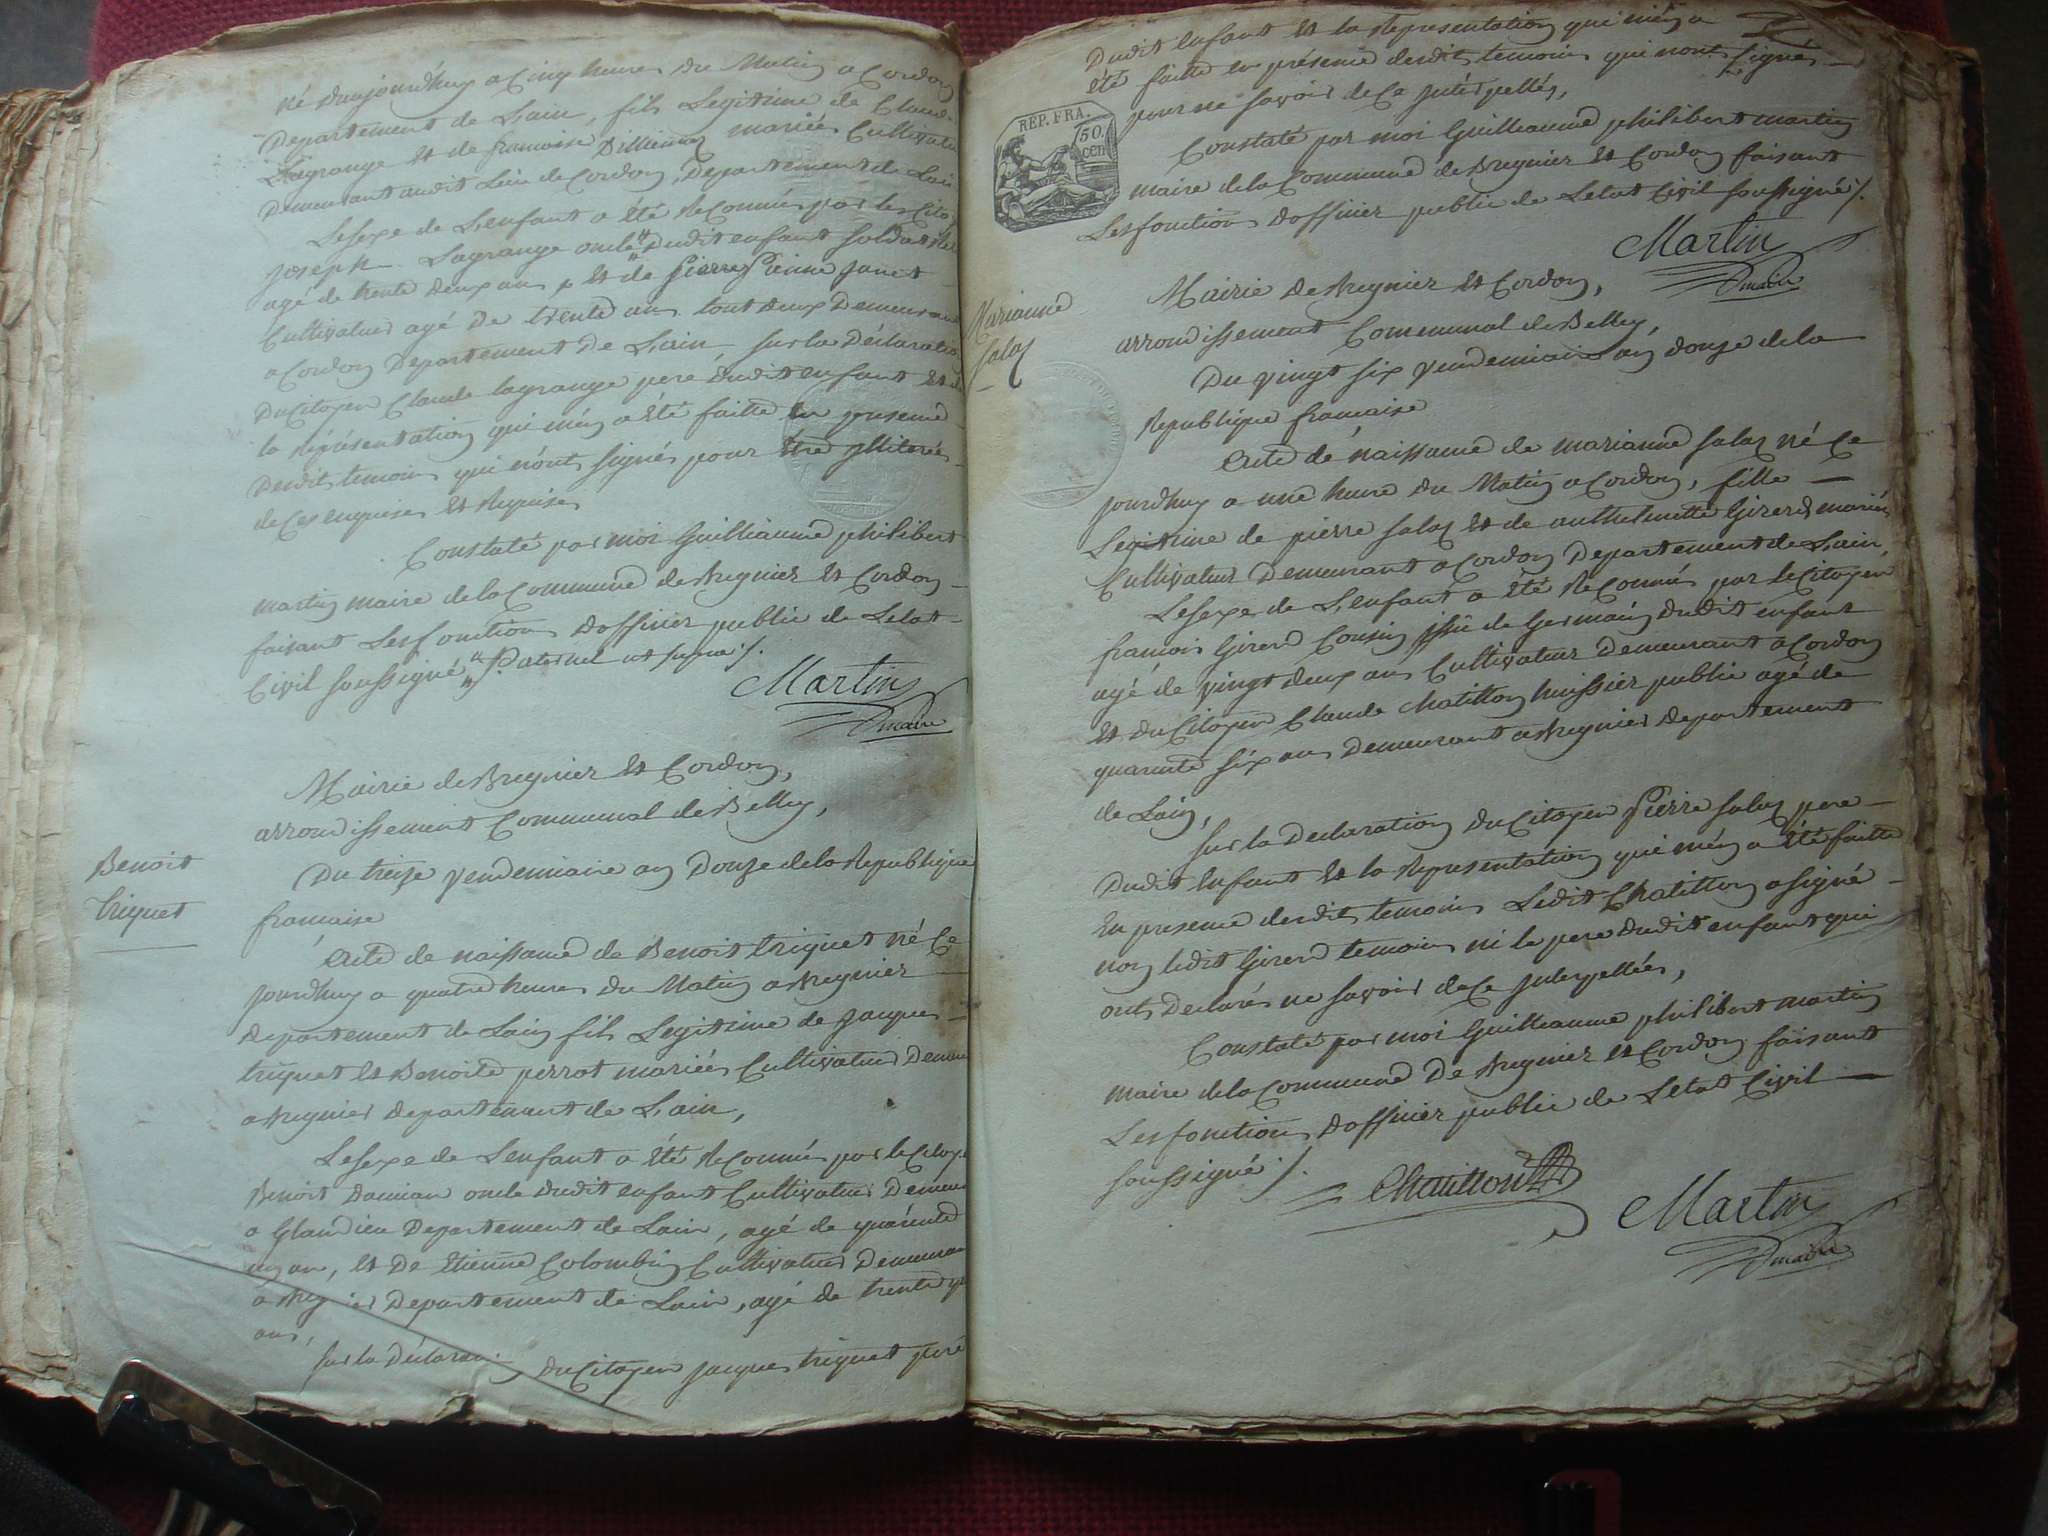 né d'aujourd'huy a Cinq heures du Matin a Cordon
Departement de Lain, fils Legitime de Claude
Lagrange et de francoise mariés Cultivateur
Demeurant audit Lieu de Cordon, Departement de Lain
Lesexe de Lenfant a été Reconnus par les Cito
joseph Lagrange oncle " Dudit enfant soldat
agé de trente deux ans et " de pierre Etienne
Cultivateur agé de trente ans tout deux Demeurant
a Cordon Departement de Lain sur la Déclaration
Du Citoyen Claude lagrange pere Dudit enfant et
la réprésentation qui m'en a été faitte en presence
Desdits temoins qui n'ont signés pour être illiterés
de Ces enquise et Requise
Constaté par moi Guillieaume philibert
martin maire de la Commune de Bregnier et Cordon
faisant Les fonctions Dofficier public de Letat
Civil soussigné " /. Paternel
Martin
maire
Mairie de Bregnier et Cordon,
arrondissement Communal de Belley,
Benoit
triquet
Du treize vendemiaire an Douze de la Republique
francaise
Acte de naissance de Benoit triquet né Ce
jourdhuy a quatre heures du Matin a Bregnier
departement de Lain fils Legitime de jacques
triquet et Benoite perrot mariés Cultivateur Demeu
a Bregnier departement de Lain,
Lesexe de Lenfant a été Reconnus par le Citoy
Benoit Damian oncle dudit enfant Cultivateur Demeu
a Glandieu Departement de Lain, agé de quarente
un an, et De Etienne Colombin Cultivateur Demeuran
a Breg ier Departement de Lain, agé de trente
ans,
sur la Déclaration du Citoyen jacques triquet peré
Dudit Enfant et la Representation qui m'en a
été faitte en présence desdits temoins qui n'ont signés
pour ne savoir de Ce jnterpellés,
REP. FRA.
50.
cen
Constaté par moi Guillieaume philibert martin
maire de la Commune de Bregnier et Cordon faisant
Les fonctions Dofficier public de Letat Civil soussigné /.
Martin
maire
Marianne
salaz
Mairie de Bregnier et Cordon,
arrondissement Communal de Belley,
Du vingt six vendemiaire an douze de la
Republique francaise
Acte dé naissance de marianne salaz né Ce
jourdhuy a une heure du Matin a Cordon, fille
Legitime de pierre salaz et de anthelmette Girerd mariés
Cultivateur Demeurant a Cordon Departement de Lain,
Lesexe de Lenfant a été Reconnus par le Citoyen
francois Girerd Cousin jssü de Germain Dudit enfant
agé de vingt deux ans Cultivateur Demeurant a Cordon
et du Citoyen Claude Chatillon huissier public agé de
quarente six ans Demeurant a Bregnier departement
de Lain,
sur la Declaration du Citoyen Pierre salaz pere
Dudit Enfant et la Representation qui m'en a été faitte
En presence desdits temoins Ledit Chatillon a signé
non ledit Girerd temoin ni le pere dudit enfant qui
ont Declarés ne savoir de Ce jnterpellées,
Constaté par moi Guillieaume philibert martin
maire de la Commune De Bregnier et Cordon faisant
Les fonctions Dofficier public de Letat Civil
soussigné /.
Chatillon
Martin
maire